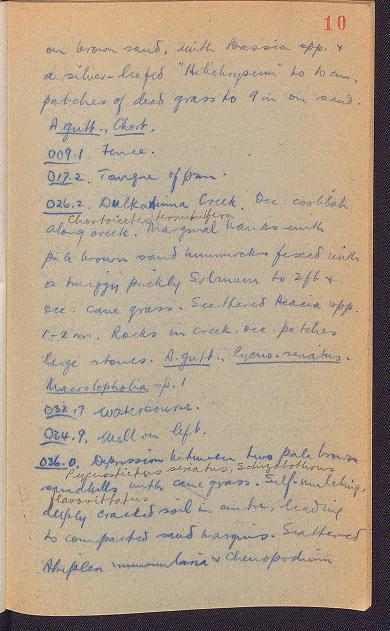 10
on brown sand, with Bassia spp. &
a silver-leafed "Helichrysum" to 10 cm,
patches of dead grass to 9 in on sand.
A. gutt., Chort.
009.1. Fence.
017.2. Tongue of pan.
026.2. Dulkaninna Creek. Occ. coolibah
Chortoicetes terminifera
along creek. Marginal banks with
pale brown sand hummocks fixed with
a twiggy prickly Solanum to 2ft &
occ. cane grass. Scattered Acacia spp.
1-2 m. Rocks in creek, occ. patches
large stones. A. gutt., Pycno. seriatus.
Macrolopholia sp. 1
032.7. Watercourse.
034.9. Well on left.
036.0. Depression between two pale brown
Pycnostictus seriatus, Schizobothrus
sandhills with cane grass. Self-mulching,
flavovittatus
deeply cracked soil in centre, leading
to compacted sand margins. Scattered
Atriplex nummularia & Chenopodium